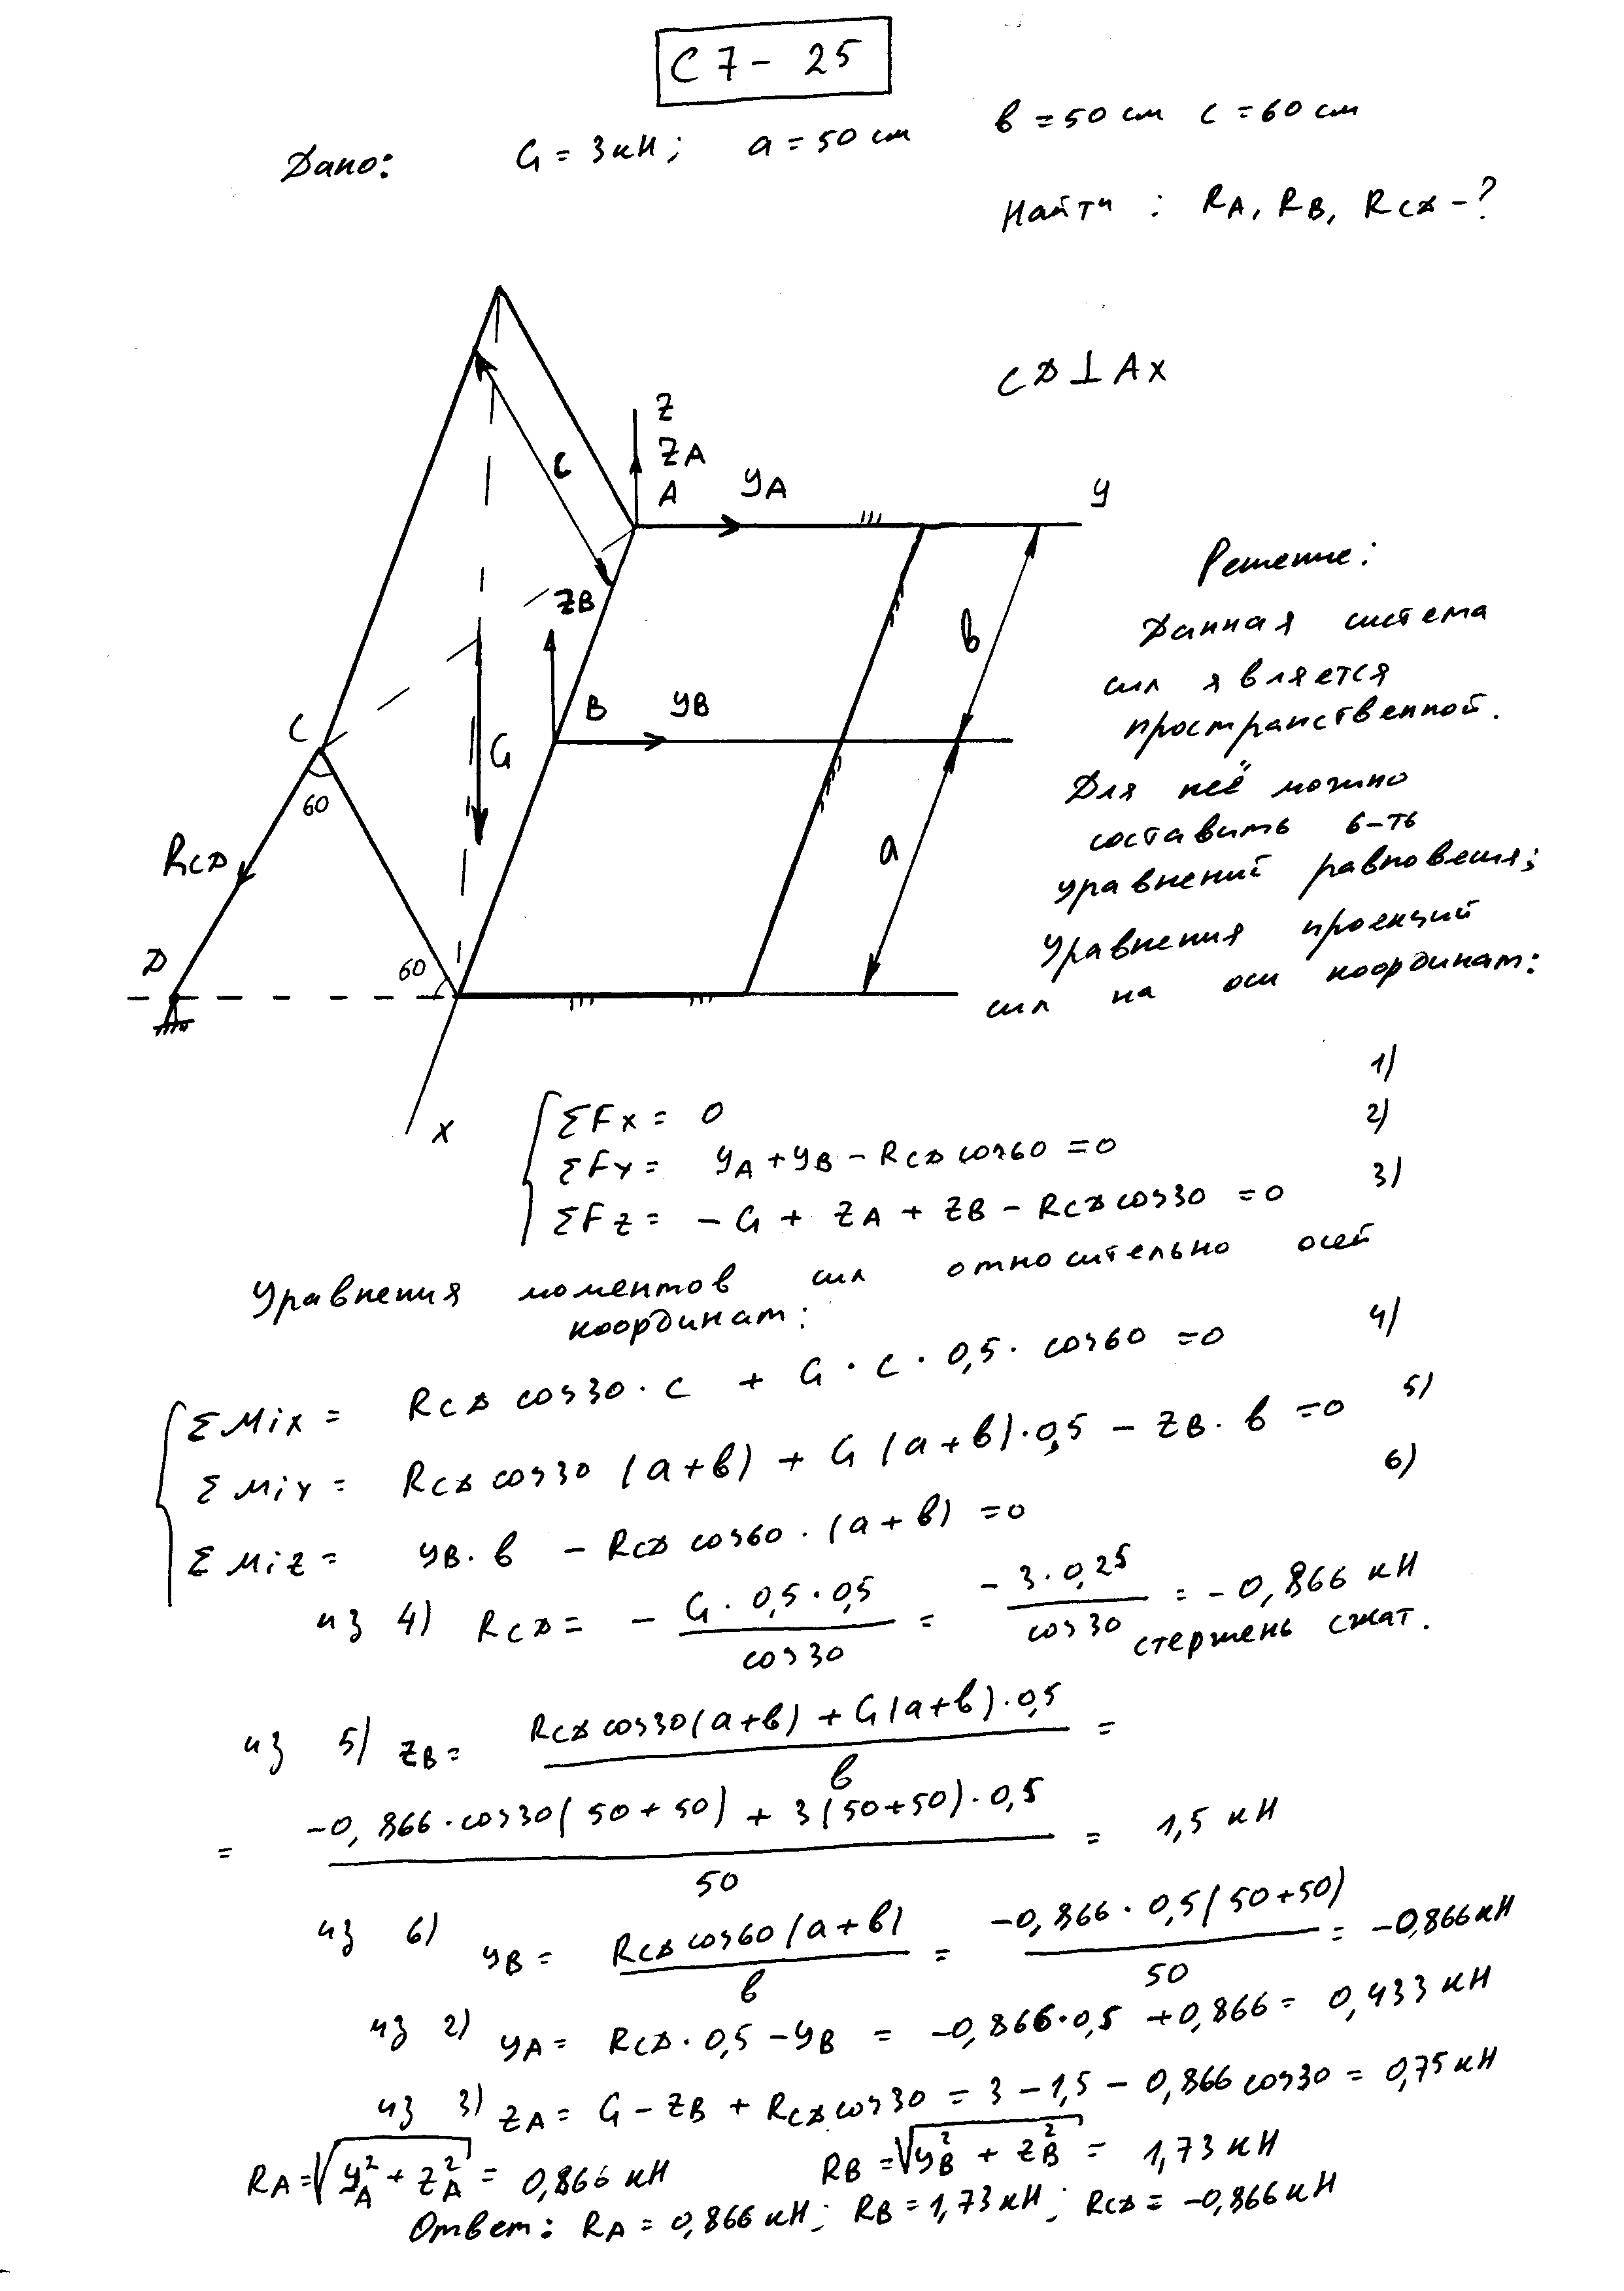 С7 - 25
Дано: G = 3 кН; a = 50 см в = 50 см c = 60 см
Найти : RA, RB, RCD - ?
CD ⊥ Ax
z
zA
A
yA
y
c
zB
B
yB
в
C
60
G
RCD
a
D
60
x
Решение:
Данная система
сил является
пространственной.
Для неё можно
составить 6-ть
уравнений равновесия;
Уравнения проекций
сил на оси координат:
ΣFx = 0 1)
ΣFy = yA + yB - RCD cos60 = 0 2)
ΣFz = - G + zA + zB - RCD cos30 = 0 3)
Уравнения моментов сил относительно осей
координат:
ΣMix = RCD cos30 · c + G · c · 0,5 · cos60 = 0 4)
ΣMiy = RCD cos30 (a+в) + G (a+в) · 0,5 - zB · в = 0 5)
ΣMiz = yB · в - RCD cos60 · (a+в) = 0 6)
из 4) RCD = - G · 0,5 · 0,5 / cos30 = - 3 · 0,25 / cos30 = - 0,866 кН
стержень сжат.
из 5) zB = RCD cos30 (a+в) + G (a+в) · 0,5 / в =
= -0,866 · cos30 (50+50) + 3 (50+50) · 0,5 / 50 = 1,5 кН
из 6) yB = RCD cos60 (a+в) / в = -0,866 · 0,5 (50+50) / 50 = -0,866 кН
из 2) yA = RCD · 0,5 - yB = -0,866 · 0,5 + 0,866 = 0,433 кН
из 3) zA = G - zB + RCD cos30 = 3 - 1,5 - 0,866 cos30 = 0,75 кН
RA = √(yA² + zA²) = 0,866 кН RB = √(yB² + zB²) = 1,73 кН
Ответ: RA = 0,866 кН; RB = 1,73 кН; RCD = -0,866 кН